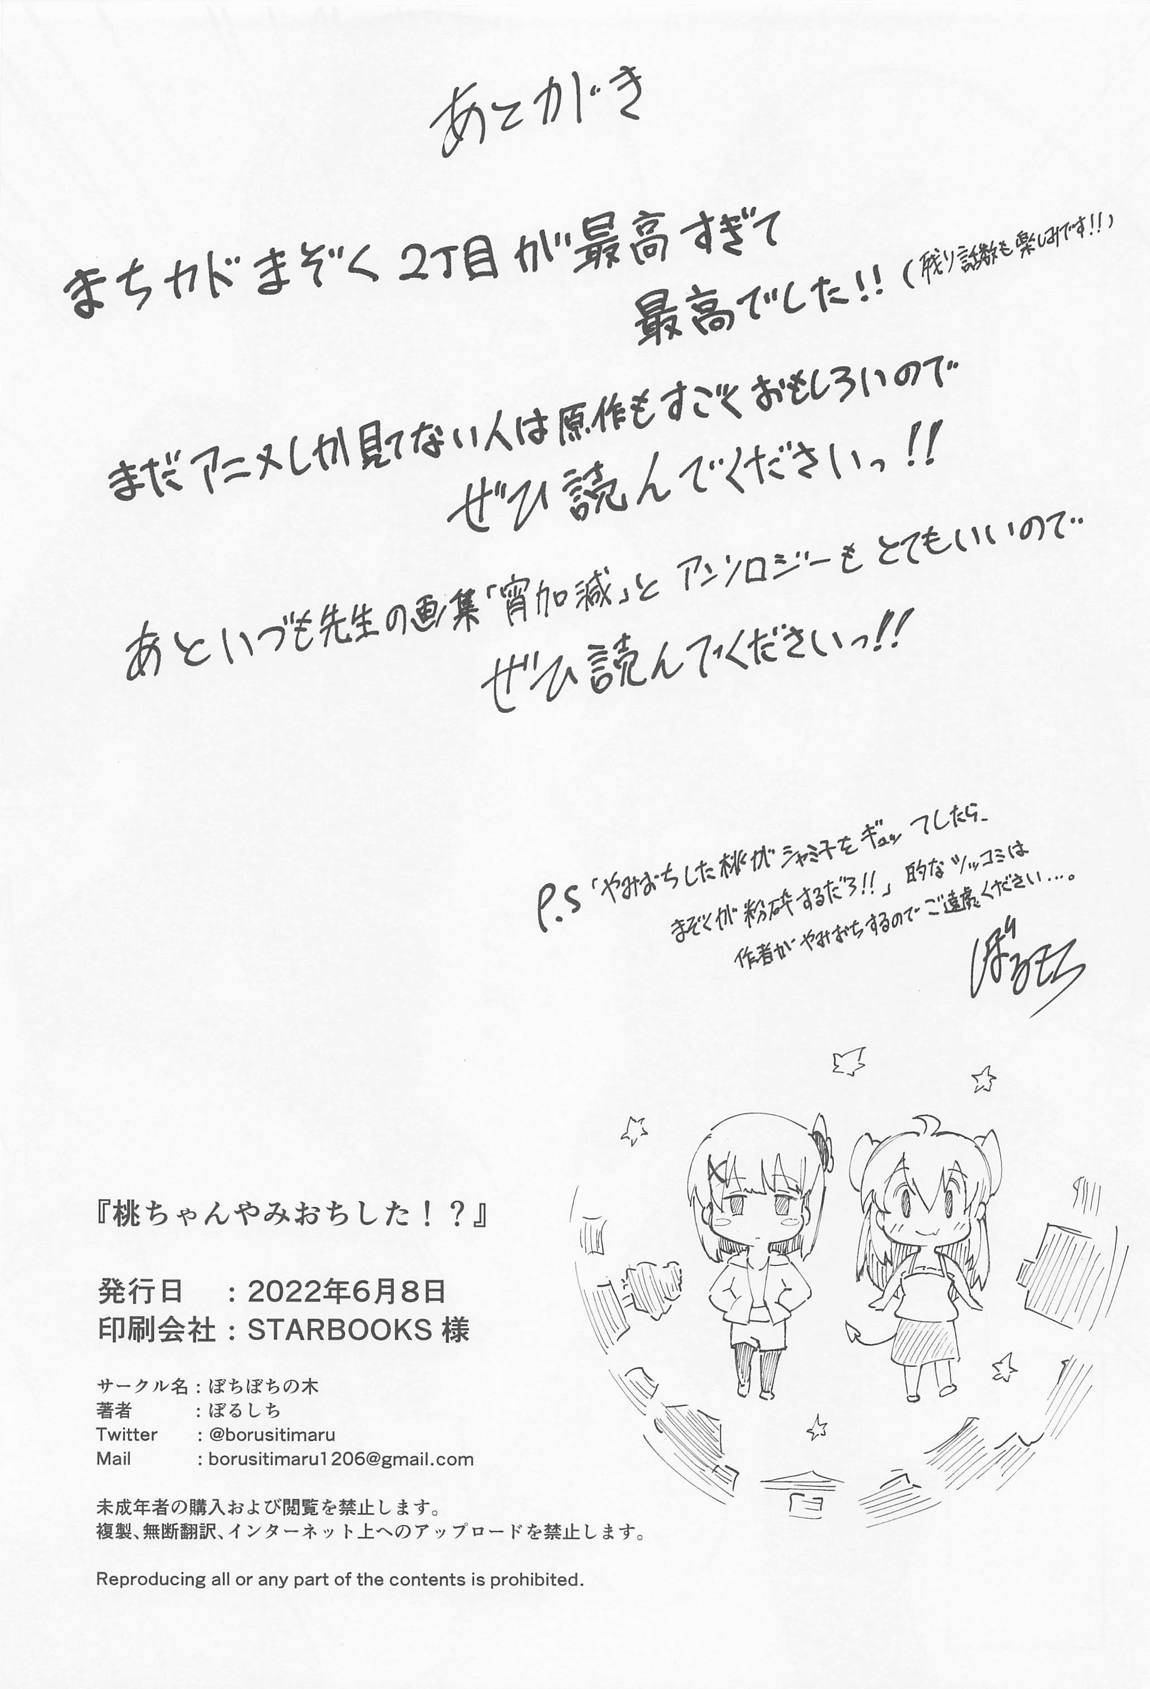 あとがき
まちカドまぞく2丁目が最高すぎて
最高でした!!(残り話数も楽しみです!!)
まだアニメしか見てない人は原作もすごくおもしろいので
ぜひ読んでくださいっ!!
あといづも先生の画集「宵加減」とアンソロジーもとてもいいので
ぜひ読んでくださいっ!!
P.S「やみおちした桃がシャミ子をギュッてしたら、
まぞくが粉砕するだろ!!」的なツッコミは
作者がやみおちするのでご遠慮ください…。
ぼるしち
『桃ちゃんやみおちした!?』
発行日 : 2022年6月8日
印刷会社 : STARBOOKS 様
サークル名 : ぼちぼちの木
著者 : ぼるしち
Twitter : @borusitimaru
Mail : borusitimaru1206@gmail.com
未成年者の購入および閲覧を禁止します。
複製、無断翻訳、インターネット上へのアップロードを禁止します。
Reproducing all or any part of the contents is prohibited.